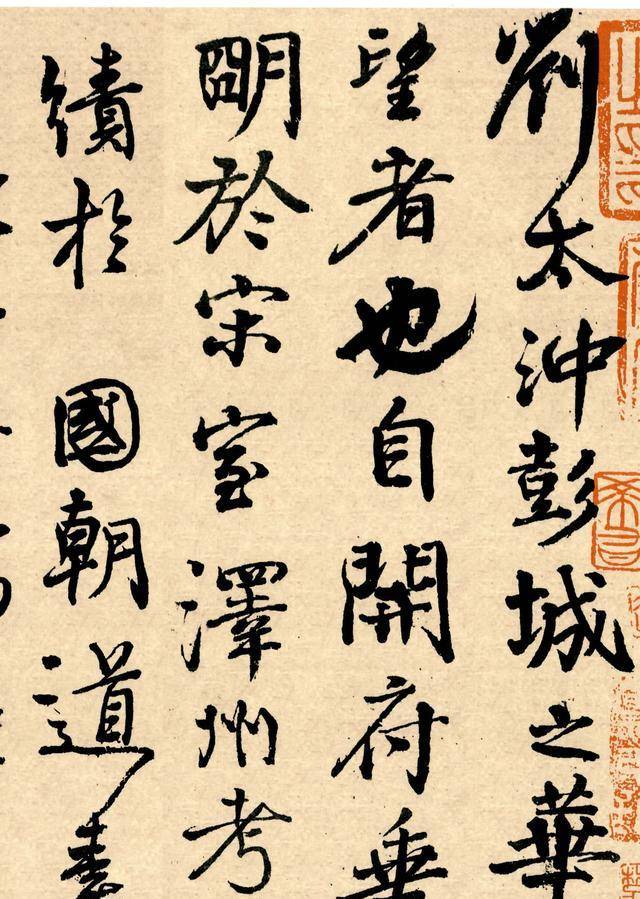 劉太沖彭城之華
望者也自開府垂
朙於宋室澤州考
績於 國朝道素